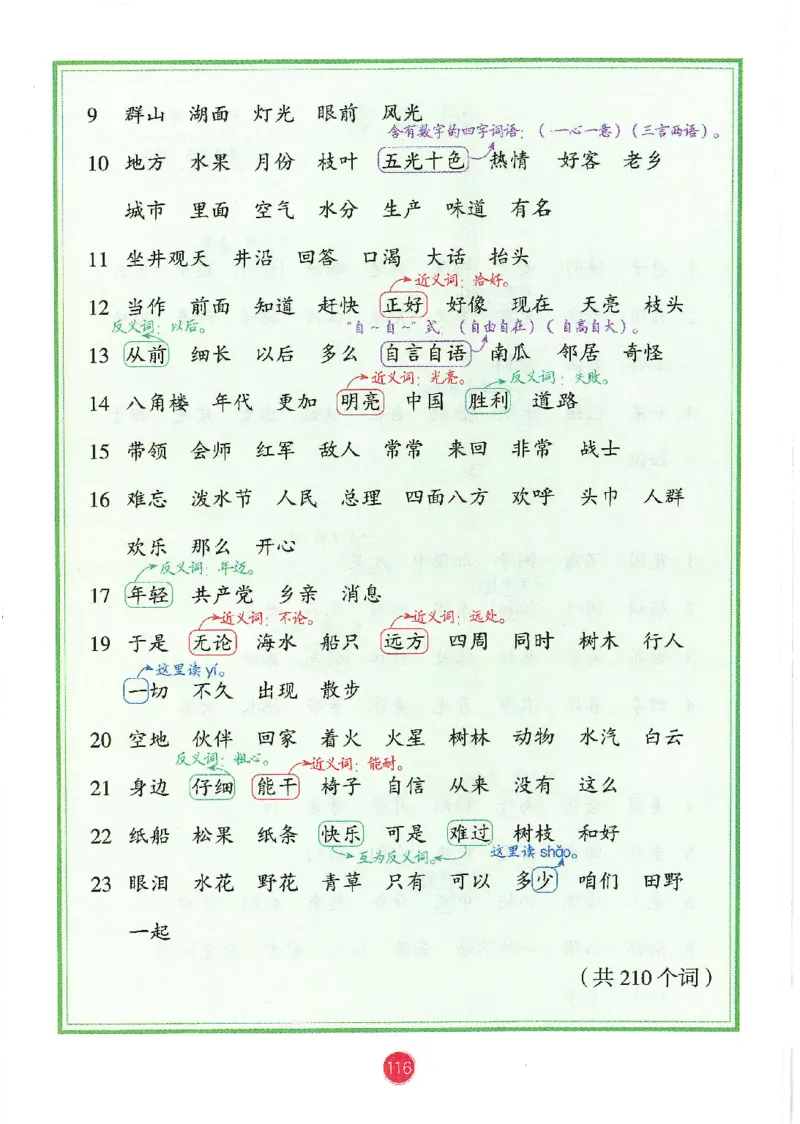 9 群山 湖面 灯光 眼前 风光
含有数字的四字词语：（一心一意）（三言两语）。
10 地方 水果 月份 枝叶 五光十色 热情 好客 老乡
城市 里面 空气 水分 生产 味道 有名
11 坐井观天 井沿 回答 口渴 大话 抬头
近义词：恰好。
12 当作 前面 知道 赶快 正好 好像 现在 天亮 枝头
反义词：以后。 “自~自~”式：（自由自在）（自高自大）。
13 从前 细长 以后 多么 自言自语 南瓜 邻居 奇怪
近义词：光亮。 反义词：失败。
14 八角楼 年代 更加 明亮 中国 胜利 道路
15 带领 会师 红军 敌人 常常 来回 非常 战士
16 难忘 泼水节 人民 总理 四面八方 欢呼 头巾 人群
欢乐 那么 开心
反义词：年迈。
17 年轻 共产党 乡亲 消息
近义词：不论。 近义词：远处。
19 于是 无论 海水 船只 远方 四周 同时 树木 行人
这里读yí。
一切 不久 出现 散步
20 空地 伙伴 回家 着火 火星 树林 动物 水汽 白云
反义词：粗心。 近义词：能耐。
21 身边 仔细 能干 椅子 自信 从来 没有 这么
22 纸船 松果 纸条 快乐 可是 难过 树枝 和好
互为反义词。 这里读shǎo。
23 眼泪 水花 野花 青草 只有 可以 多少 咱们 田野
一起
（共 210 个词）
116